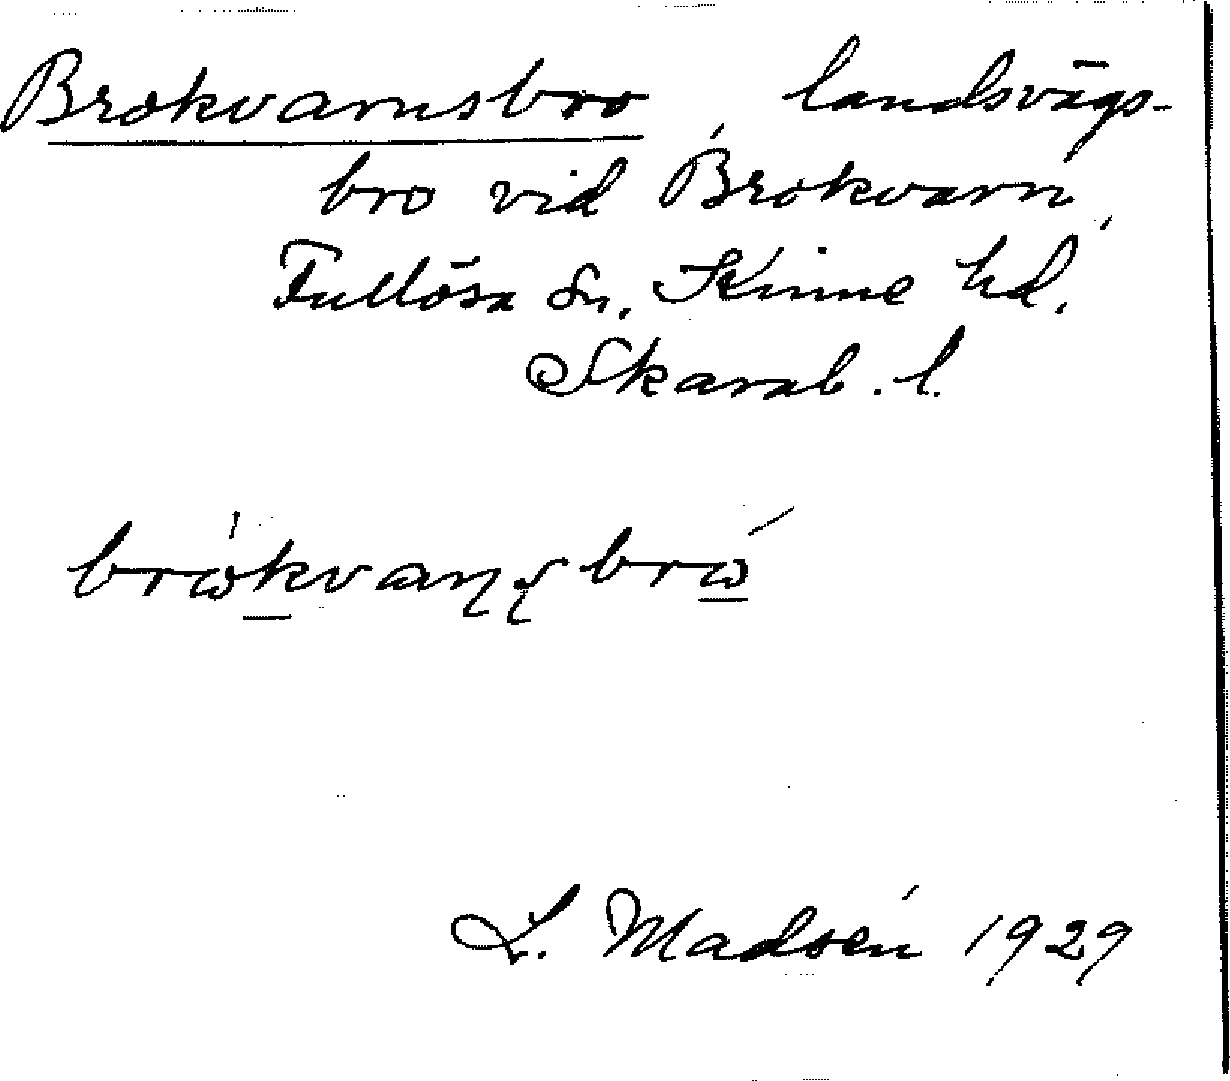 Brokvarnsbro landsvägs-
bro vid Brokvarn,
Fullösa sn, Kinne hd,
Skarab. l.
brωkvaɳʂbrω
L. Madsén 1929